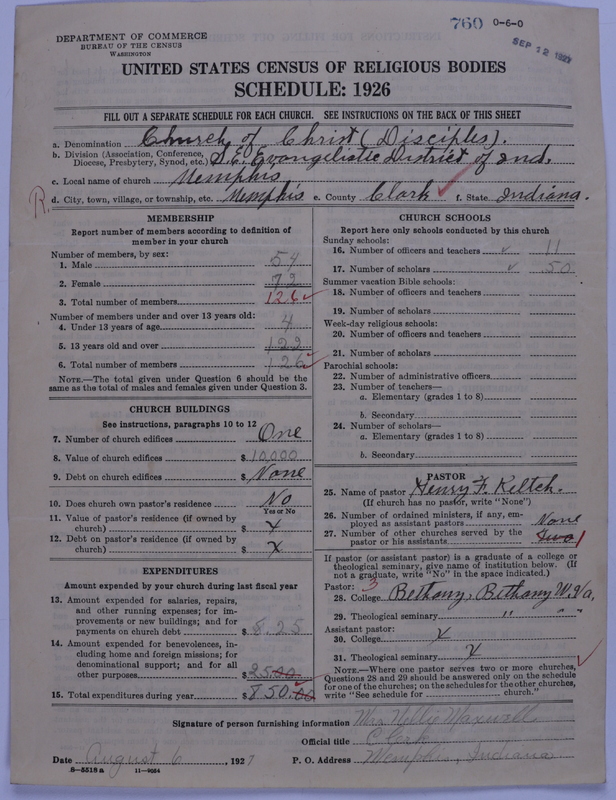 760 0-6-0
SEP 12 1927
DEPARTMENT OF COMMERCE
BUREAU OF THE CENSUS
WASHINGTON
UNITED STATES CENSUS OF RELIGIOUS BODIES
SCHEDULE: 1926
FILL OUT A SEPARATE SCHEDULE FOR EACH CHURCH. SEE INSTRUCTIONS ON THE BACK OF THIS SHEET
a. Denomination Church of Christ (Disciples).
b. Division (Association, Conference, Diocese, Presbytery, Synod, etc.) S.E. Evangelistic District of Ind.
c. Local name of church Memphis
R. d. City, town, village, or township, etc. Memphis e. County Clark f. State Indiana.
MEMBERSHIP
Report number of members according to definition of
member in your church
Number of members, by sex:
1. Male 54
2. Female 72
3. Total number of members 126
Number of members under and over 13 years old:
4. Under 13 years of age 4
5. 13 years old and over 122
6. Total number of members 126
NOTE.—The total given under Question 6 should be the
same as the total of males and females given under Question 3.
CHURCH BUILDINGS
See instructions, paragraphs 10 to 12
7. Number of church edifices One
8. Value of church edifices $ 10,000
9. Debt on church edifices $ None
10. Does church own pastor's residence No
Yes or No
11. Value of pastor's residence (if owned by
church) $ x
12. Debt on pastor's residence (if owned by
church) $ x
EXPENDITURES
Amount expended by your church during last fiscal year
13. Amount expended for salaries, repairs,
and other running expenses; for im-
provements or new buildings; and for
payments on church debt $ 825
14. Amount expended for benevolences, in-
cluding home and foreign missions; for
denominational support; and for all
other purposes $ 25.00
15. Total expenditures during year $ 850.00
CHURCH SCHOOLS
Report here only schools conducted by this church
Sunday schools:
16. Number of officers and teachers 11
17. Number of scholars 50
Summer vacation Bible schools:
18. Number of officers and teachers
19. Number of scholars
Week-day religious schools:
20. Number of officers and teachers
21. Number of scholars
Parochial schools:
22. Number of administrative officers
23. Number of teachers—
a. Elementary (grades 1 to 8)
b. Secondary
24. Number of scholars—
a. Elementary (grades 1 to 8)
b. Secondary
PASTOR
25. Name of pastor Henry F. Keltch.
(If church has no pastor, write "None")
26. Number of ordained ministers, if any, em-
ployed as assistant pastors None
27. Number of other churches served by the
pastor or his assistants two 1
If pastor (or assistant pastor) is a graduate of a college or
theological seminary, give name of institution below. (If
not a graduate, write "No" in the space indicated.)
Pastor: 3
28. College Bethany, Bethany W. Va.
29. Theological seminary " " "
Assistant pastor:
30. College x
31. Theological seminary x
NOTE.—Where one pastor serves two or more churches,
Questions 28 and 29 should be answered only on the schedule
for one of the churches; on the schedules for the other churches,
write "See schedule for church."
Signature of person furnishing information Mrs Nellie Maxwell
Official title Clerk
Date August 6, 1927 P. O. Address Memphis, Indiana
8-5518a 11-9664